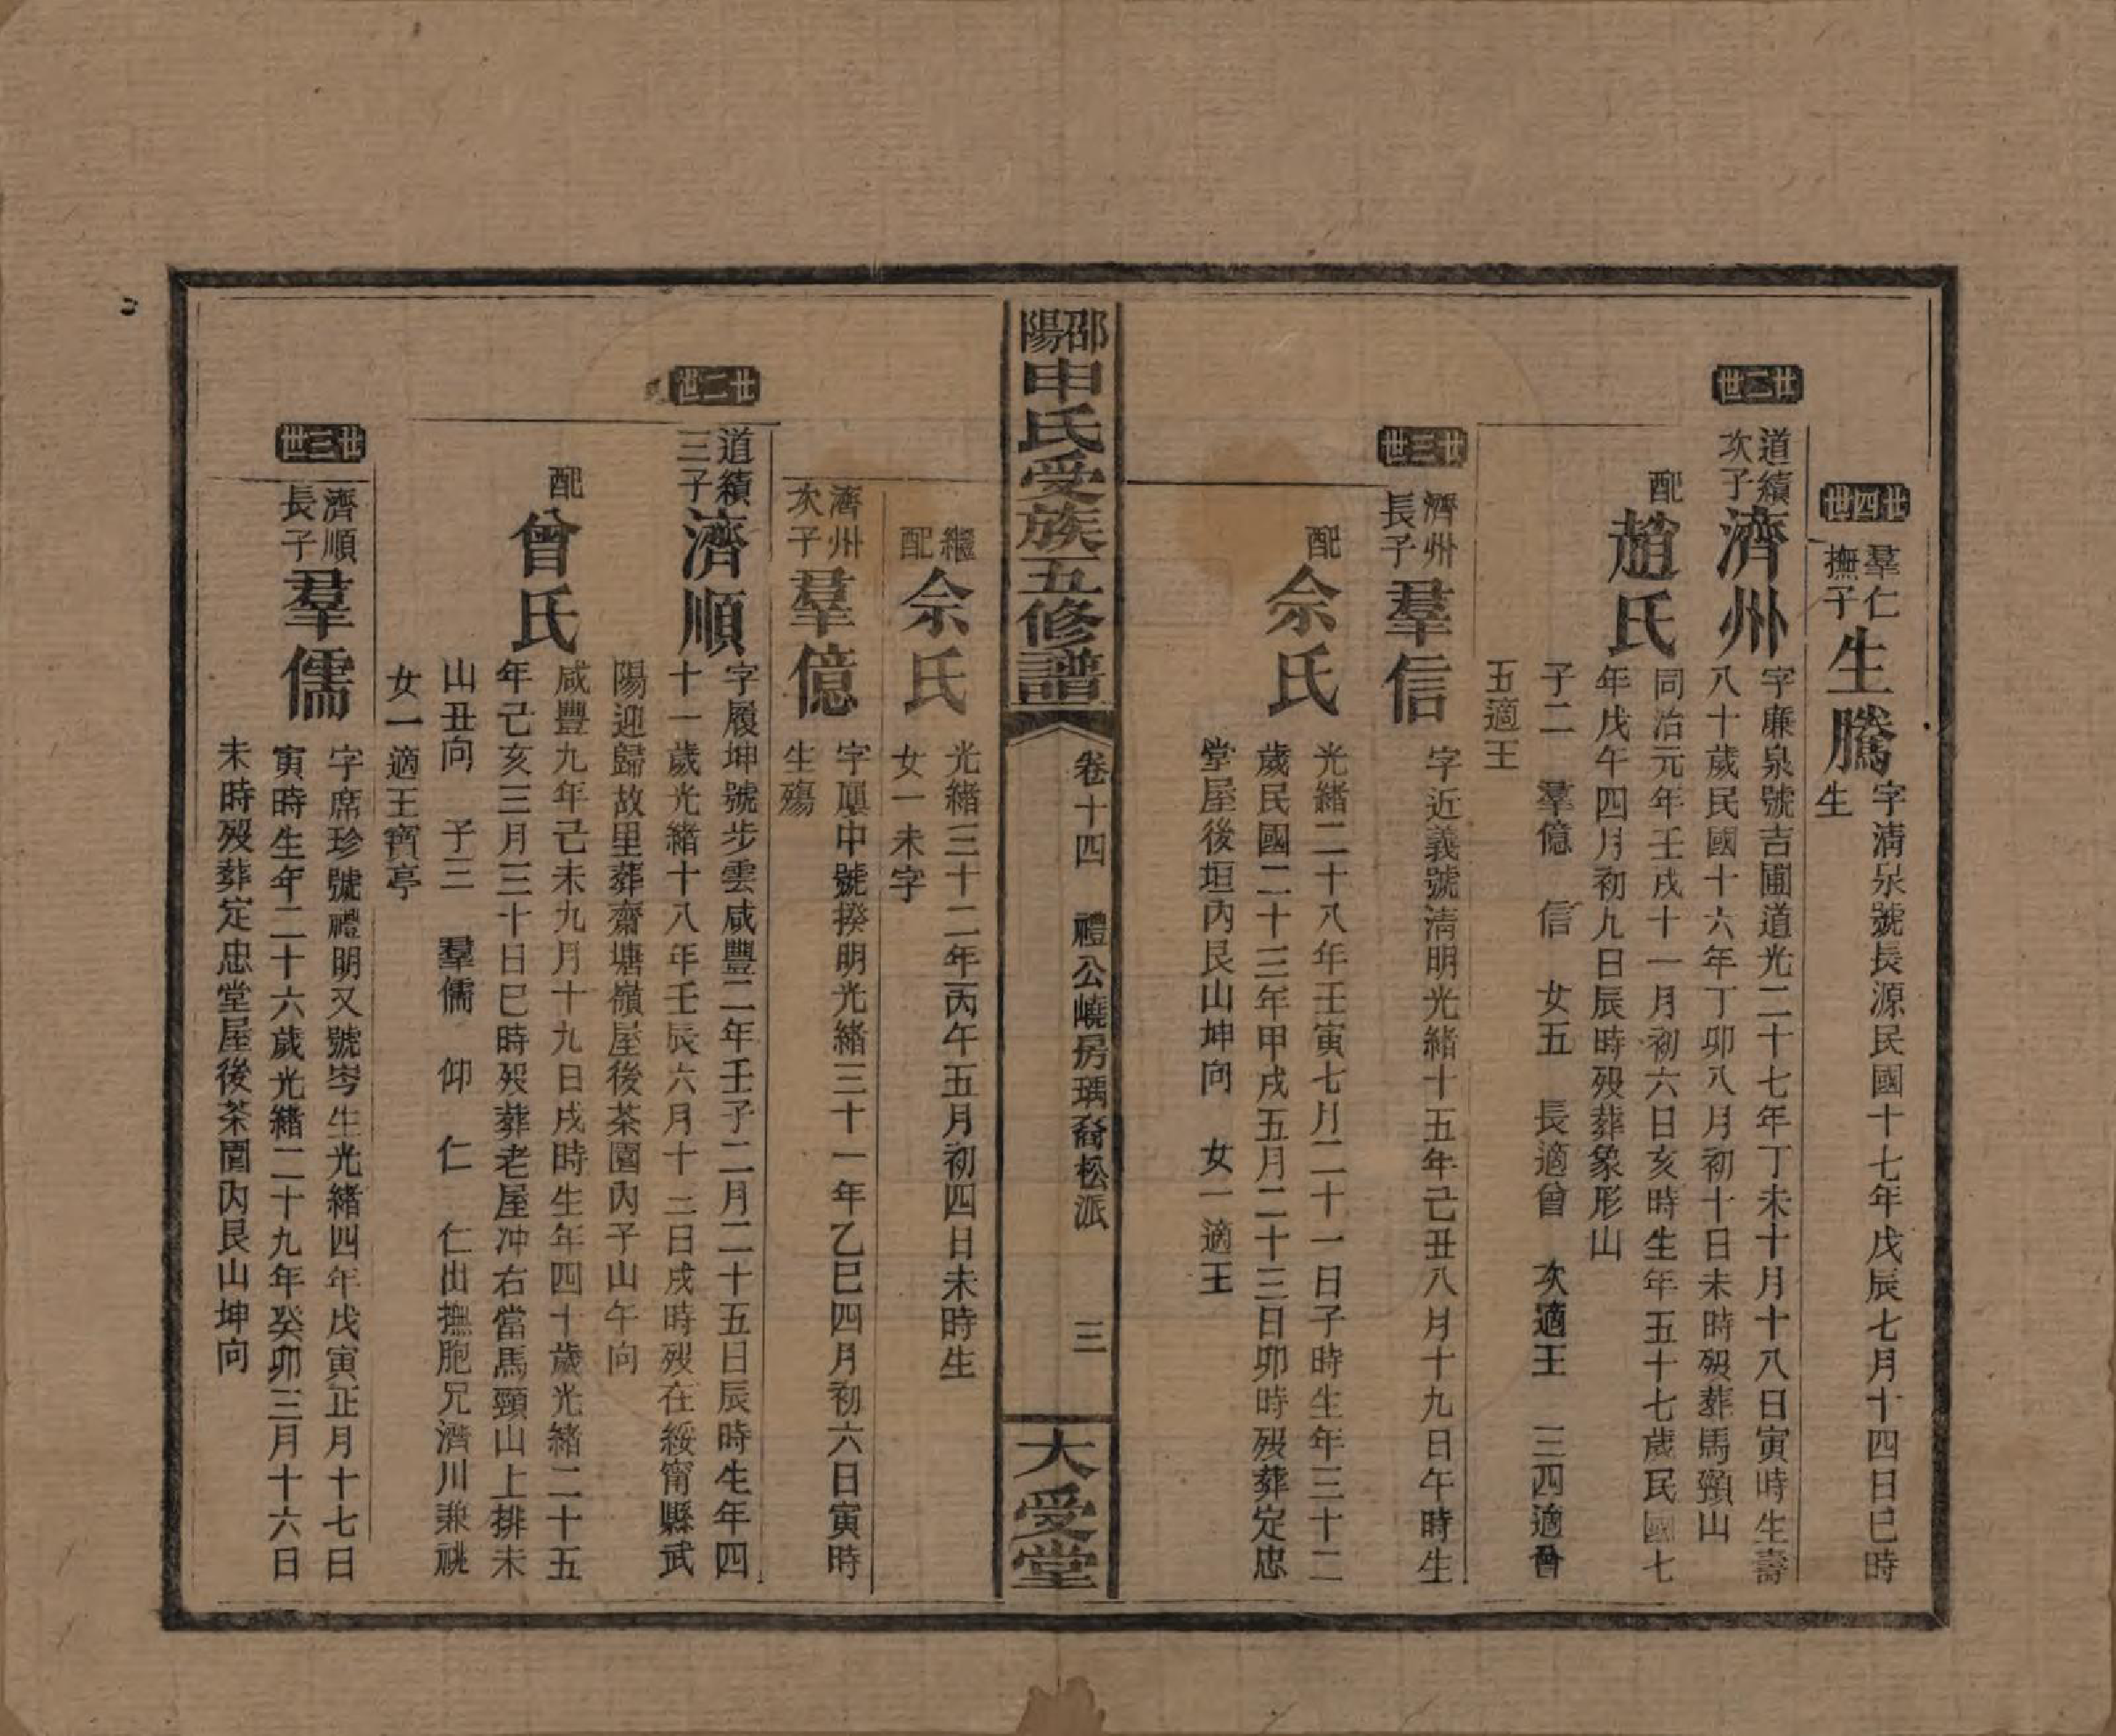 廿四世
羣仁
撫子
生騰
字清泉號長源民國十七年戊辰七月十四日巳時
生
廿二世
道績
次子
濟州
字廉泉號吉圃道光二十七年丁未十月十八日寅時生壽
八十歲民國十六年丁卯八月初十日未時歿葬馬頸山
配
趙氏
同治元年壬戌十一月初六日亥時生年五十七歲民國七
年戊午四月初九日辰時歿葬象形山
子二 羣億 信 女五 長適曾 次適王 三四適曾
五適王
廿三世
濟州
長子
羣信
字近義號清明光緒十五年己丑八月十九日午時生
配
佘氏
光緒二十八年壬寅七月二十一日子時生年三十二
歲民國二十三年甲戌五月二十三日卯時歿葬定忠
堂屋後垣內艮山坤向 女一適王
邵陽申氏受族五修譜
卷十四 禮公嶢房瑀裔松派 三
大受堂
繼
配
佘氏
光緒三十二年丙午五月初四日未時生
女一未字
濟州
次子
羣億
字順中號揆明光緒三十一年乙巳四月初六日寅時
生殤
廿二世
道績
三子
濟順
字履坤號步雲咸豐二年壬子二月二十五日辰時生年四
十一歲光緒十八年壬辰六月十二日戌時歿在綏甯縣武
陽迎歸故里葬齋塘嶺屋後茶園內子山午向
配
曾氏
咸豐九年己未九月十九日戌時生年四十歲光緒二十五
年己亥三月三十日巳時歿葬老屋冲右當馬頸山上排未
山丑向 子三 羣儒 仰 仁 仁出撫胞兄濟川兼祧
女一適王寶亭
廿三世
濟順
長子
羣儒
字席珍號禮明又號岑生光緒四年戊寅正月十七日
寅時生年二十六歲光緒二十九年癸卯三月十六日
未時歿葬定忠堂屋後茶園內艮山坤向